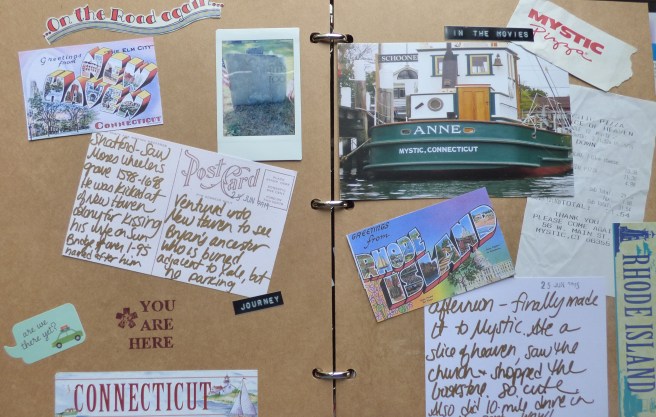 On the Road again...
THE ELM CITY
Greetings from
NEW HAVEN
CONNECTICUT
Post Card
23 JUN 1993
Stratford - Saw
Moses wheelers
grave 1598-1698
He was kicked out
of New Haven
colony for kissing
his wife on Sun.
Bridge over I-95
named after him
Venture into
New Haven to see
Bryan's ancestor
who is buried
adjacent to Yale, but
no parking
JOURNEY
are we there yet?
YOU
ARE
HERE
CONNECTICUT
IN THE MOVIES
MYSTIC
Pizza
SCHOONE
ANNE
MYSTIC, CONNECTICUT
OF HEAVEN
DOWN
THANK YOU
PLEASE COME AGAIN
56 W MAIN ST
MYSTIC, CT
GREETINGS from
RHODE ISLAND
RHODE ISLAND
23 JUN 1993
afternoon - finally made
it to Mystic. Ate a
slice of heaven, saw the
church & shopped the
bookstore so cute.
Also did 10 mile drive in